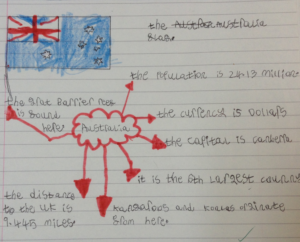 the Australia
the population is 24.13 million
the grat Barrier Reef
is Bound
here.
Australia
the currency is Dollars
the capital is canberra
it is the 6th Largest country
the distance
to the UK is
9,445 miles
kangaroos and koalas originate
from here.